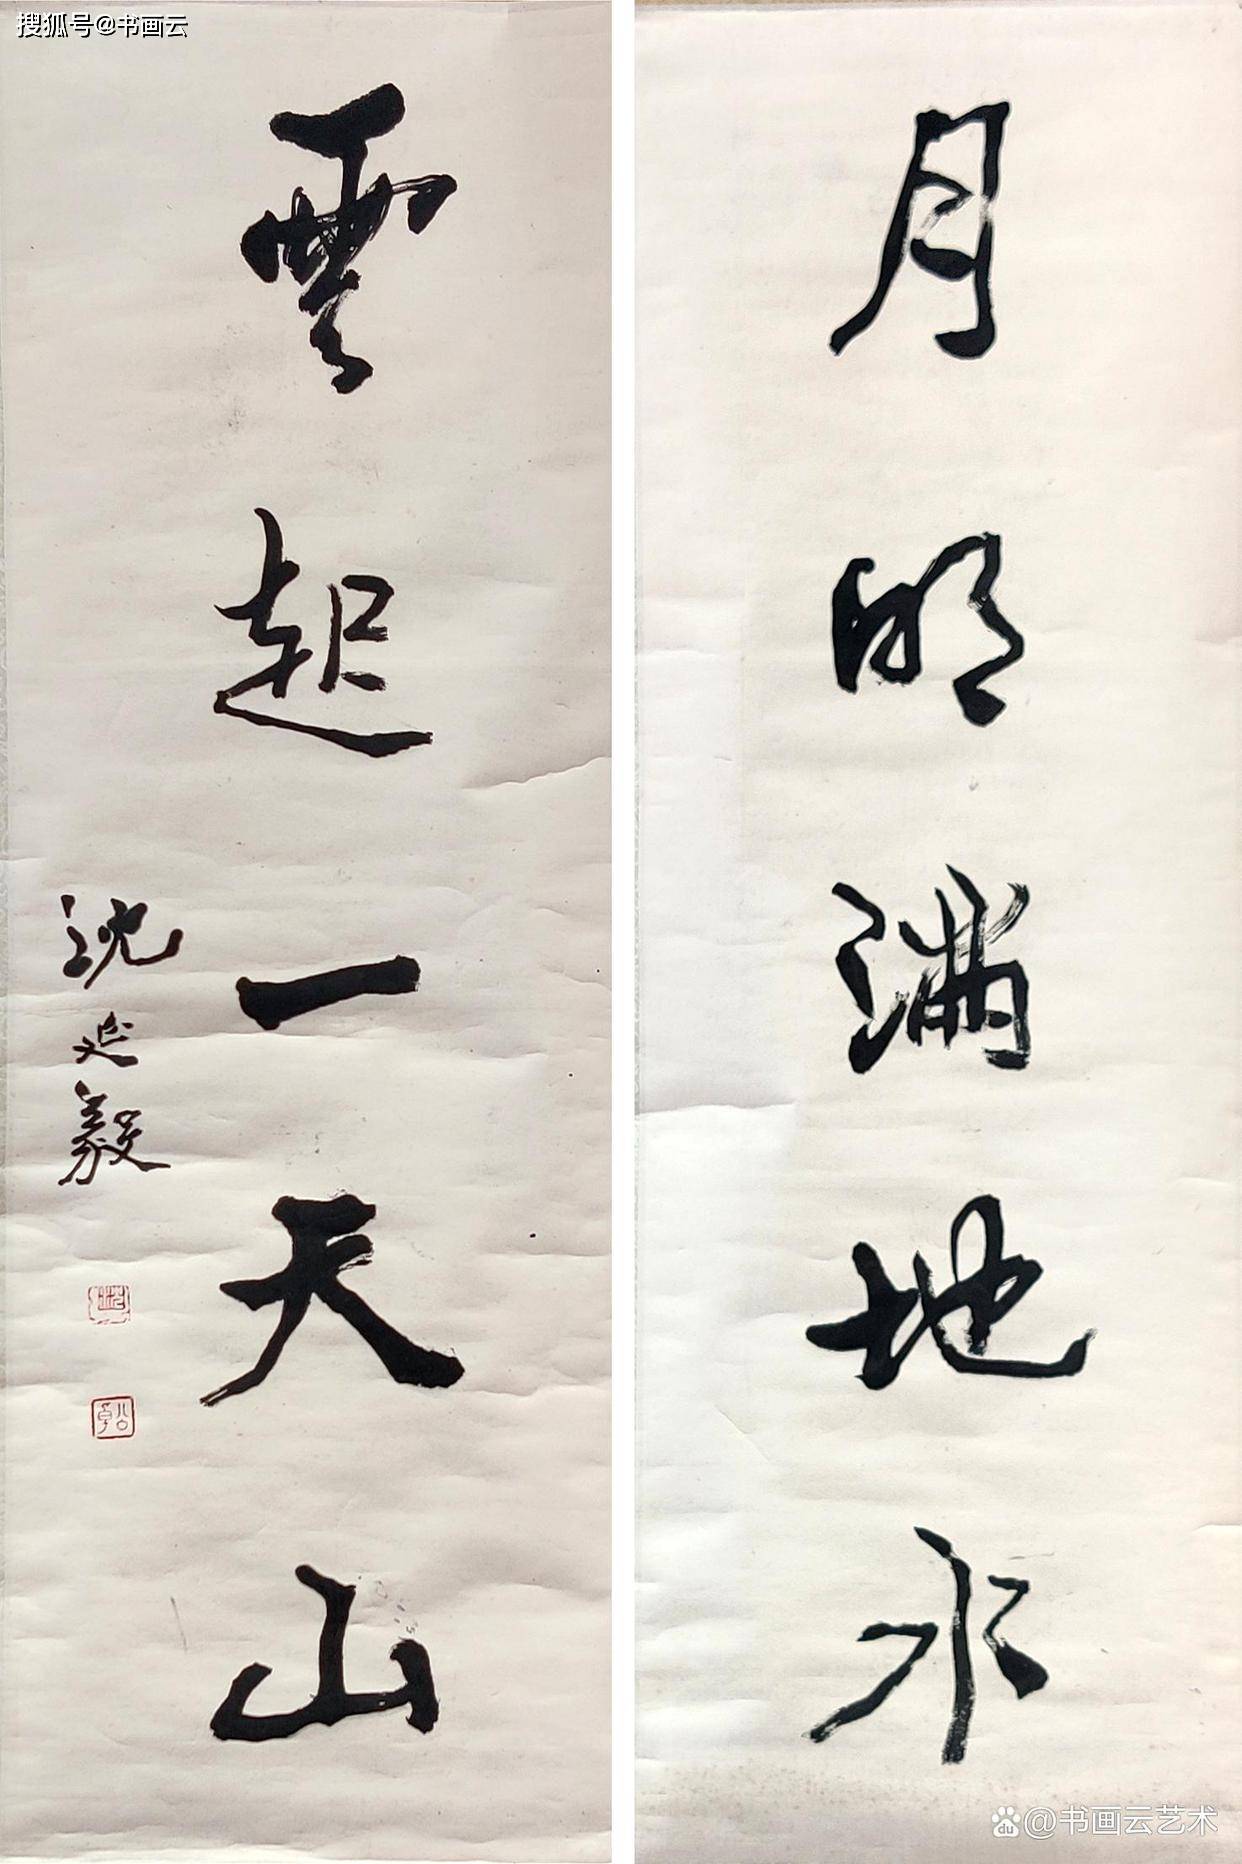 搜狐号@书画云
月明满地水
雲起一天山
沈延毅
@书画云艺术